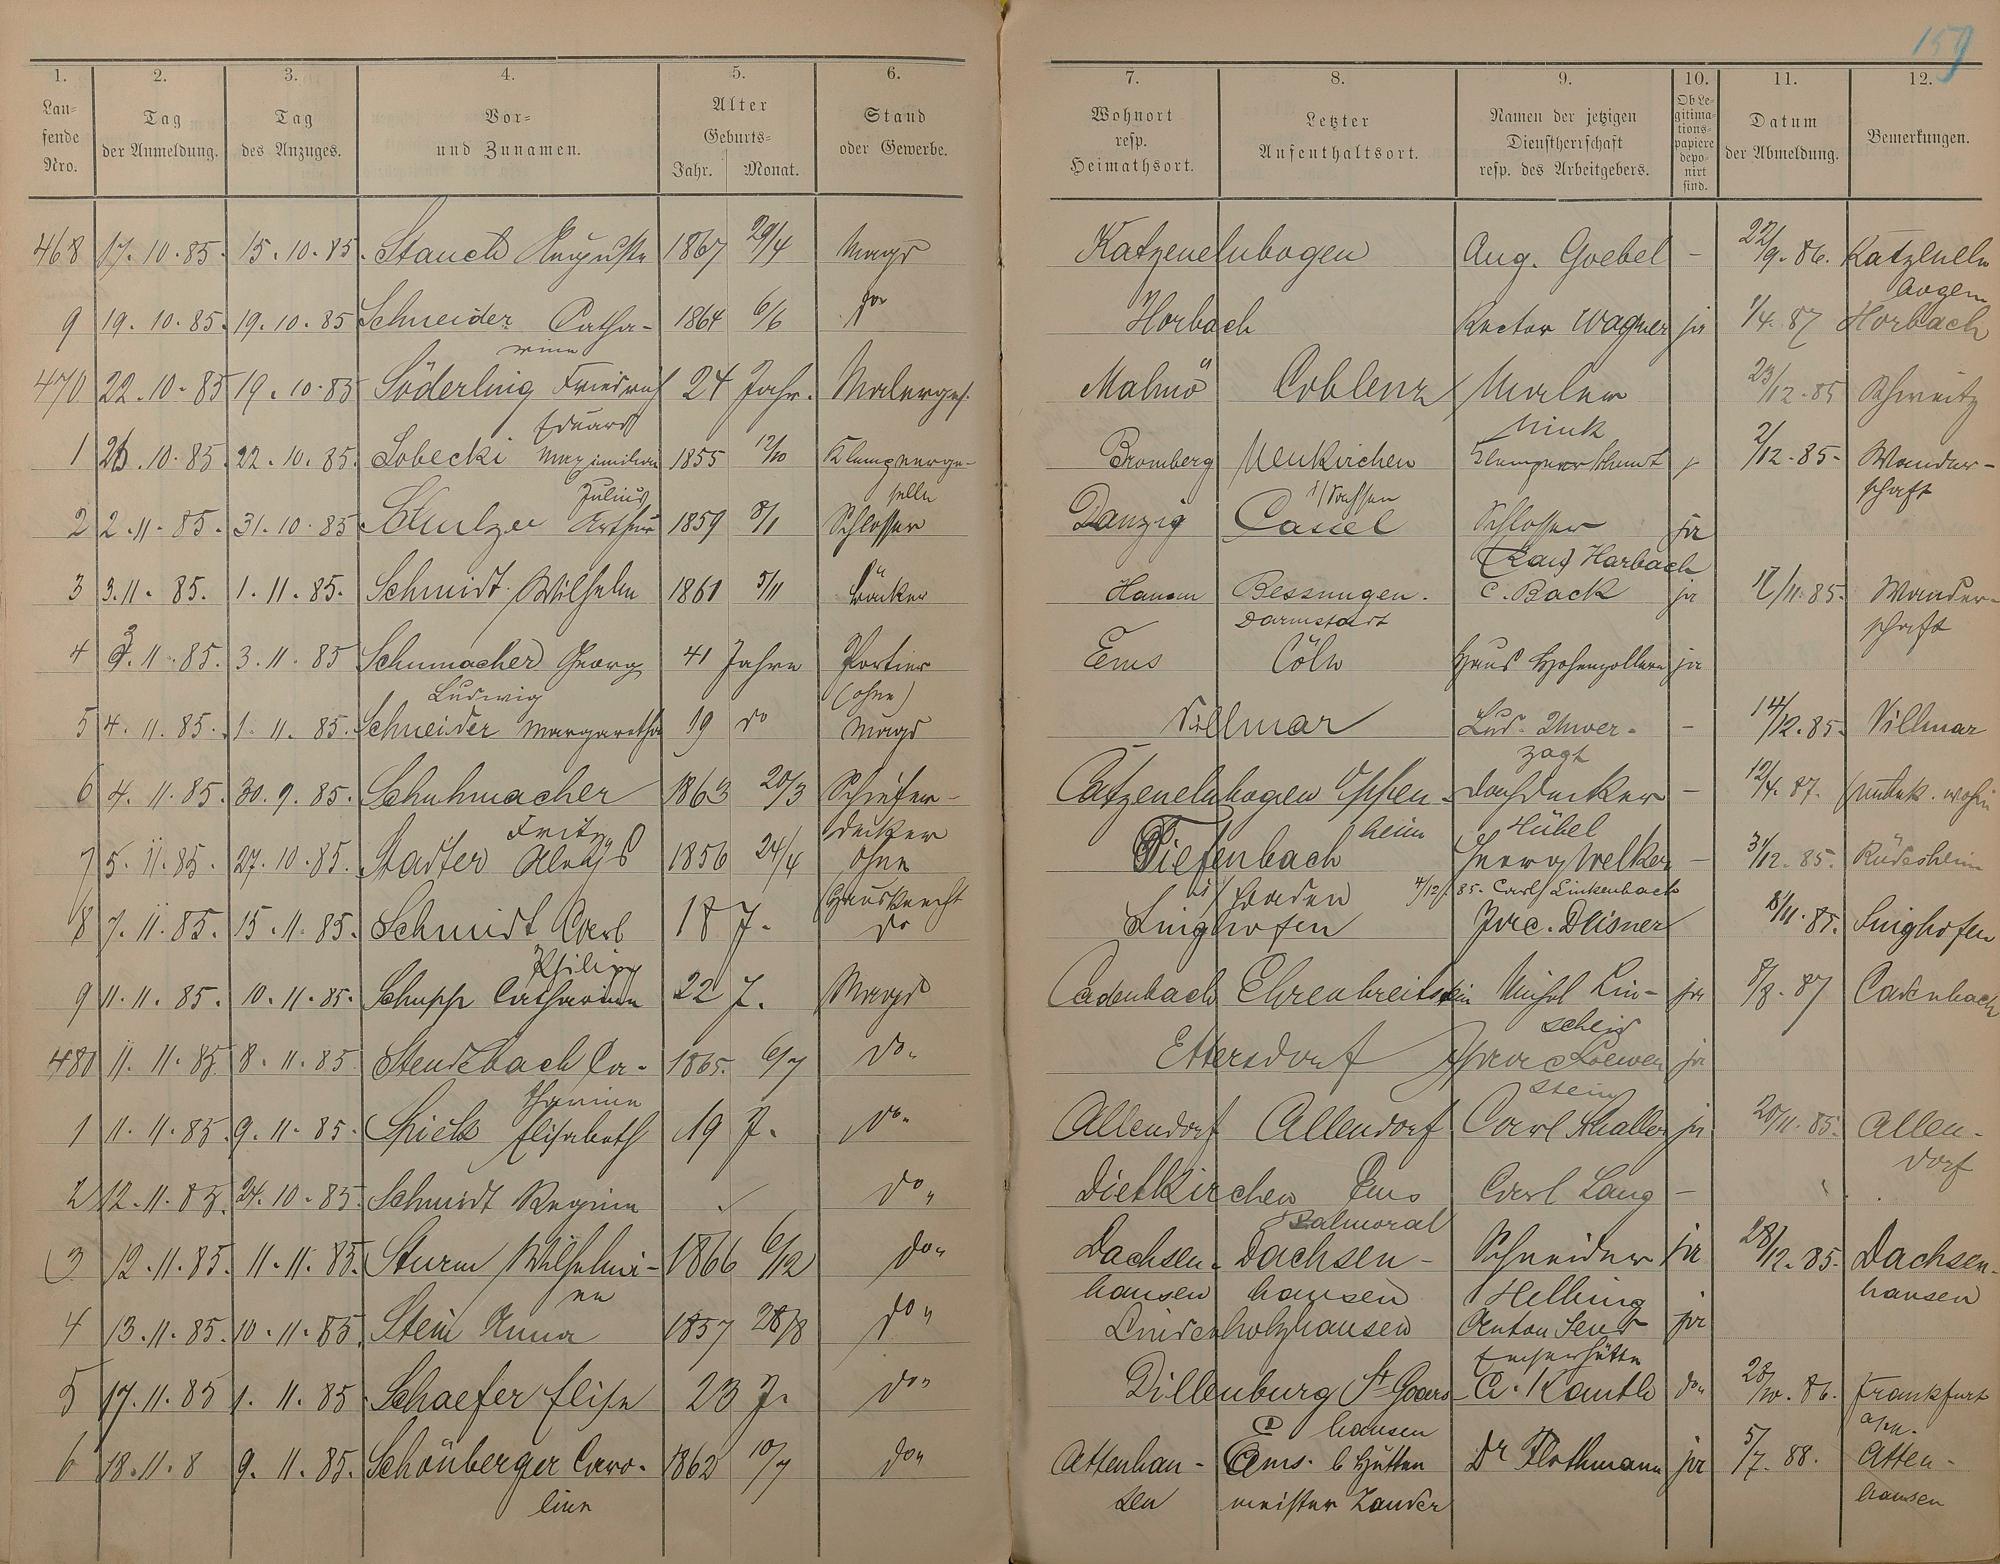 159
1. 2. 3. 4. 5. 6. 7. 8. 9. 10. 11. 12.
Lau-
fende
Nro.
Tag
der Anmeldung.
Tag
des Anzuges.
Vor-
und Zunamen.
Alter
Geburts-
Jahr. Monat.
Stand
oder Gewerbe.
Wohnort
resp.
Heimathsort.
Letzter
Aufenthaltsort.
Namen der jetzigen
Dienstherrschaft
resp. des Arbeitgebers.
Ob Le-
gitima-
tions-
papiere
depo-
nirt
sind.
Datum
der Abmeldung.
Bemerkungen.
468 17.10.85. 15.10.85. Stauch Auguste 1867 29/4 Magd Katzenelnbogen Aug. Goebel - 22/9.86. Katzeneln
bogen
9 19.10.85. 19.10.85 Schneider Catha- 1864 6/6 do Horbach Rector Wagner ja 1/4.87 Horbach
rine
470 22.10.85 19.10.85 Söderling Friedrich 24 Jahr. Malerges. Malmö Coblenz Maler 23/12.85 Schweitz
Eduard Mink
1 26.10.85. 22.10.85. Lobecki Maximilian 1855 12/10 Klempnerge- Bromberg Neukirchen Klempner Schmidt 2/12.85. Wander-
Julius selle schaft
2 2.11.85. 31.10.85 Schulze Arthur 1859 8/1 Schlosser Danzig Cassel Schlosser ja
Karl Harbach
3 3.11.85. 1.11.85. Schmidt Wilhelm 1861 5/11 Bäcker Hanau Bessungen. C. Back ja 17/11.85. Wander-
Darmstadt schaft
4 3.11.85. 3.11.85 Schumacher Georg 41 Jahre Portier Ems Cöln Haus Hohenzollern ja
Ludwig (ohne)
5 4.11.85. 1.11.85. Schneider Margaretha 19 do Magd Villmar Lud. Unver- - 14/12.85. Villmar
zagt
6 4.11.85. 30.9.85. Schuhmacher 1863 20/3 Schiefer- Catzenelnbogen Eppen- Dachdecker - 12/4.87. unbek. wohin
Fritz decker heim Hübel
7 5.11.85. 27.10.85. Stadter Aloys 1856 24/4 ohne Tiefenbach Georg Welker - 31/12.85. Rüdesheim
Hausknecht i/ Baden 4/12.85. Carl Linkenbach
8 7.11.85. 15.11.85. Schmidt Carl 18 J. do Singhofen Jac. Deisner 18/11.85. Singhofen
Philipp
9 11.11.85. 10.11.85. Schupp Catharina 22 J. Magd Cadenbach Ehrenbreitstein Michel Lin- ja 8/8.87 Cadenbach
scheid
480 11.11.85 8.11.85 Stendebach Ca- 1865. 6/7 do. Ettersdorf Isaac Loewen ja
tharine stein
1 11.11.85. 9.11.85. Spick Elisabeth 19 J. do. Allendorf Allendorf Carl Schaller ja 20/11.85. Allen-
dorf
2 12.11.85. 24.10.85. Schmidt Regina do Dietkirchen Ems Carl Lang -
Balmoral
3 12.11.85. 11.11.85. Sturm Wilhelmi- 1866 6/12 do Dachsen- Dachsen- Schneider ja 28/12.85. Dachsen-
ne hausen hausen Helbing hausen
4 13.11.85. 10.11.85 Stein Anna 1857 28/8 do Lindenholzhausen Anton Send ja
Emserhütte
5 17.11.85 1.11.85 Schaefer Elise 23 J. do Dillenburg St Goars- C. Kauth do 28/10.86. Frankfurt
hausen a/M.
6 18.11.8 9.11.85. Schönberger Caro- 1862 10/7 do Attenhau- Ems. b Hütten Dr Flothmann ja 5/7.88. Atten-
line sen meister Zander hausen